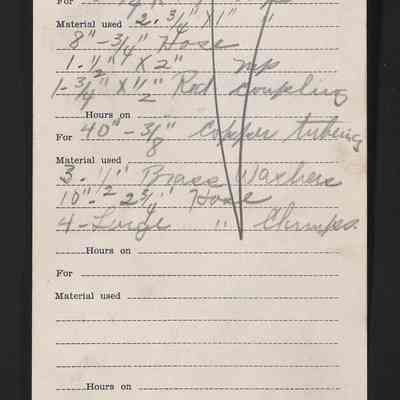 For
Material used 2. 3/4" X 1" "
8" - 3/4" Hose
1. 1/2" X 2" nip
1 - 3/4" X 1/2" Red coupling
Hours on
For 40" - 3/8" Copper tubing
Material used
3. 1/2" Brass Washers
10" - 2 3/4" Hose
4 - Large " Clamps
Hours on
For
Material used
Hours on